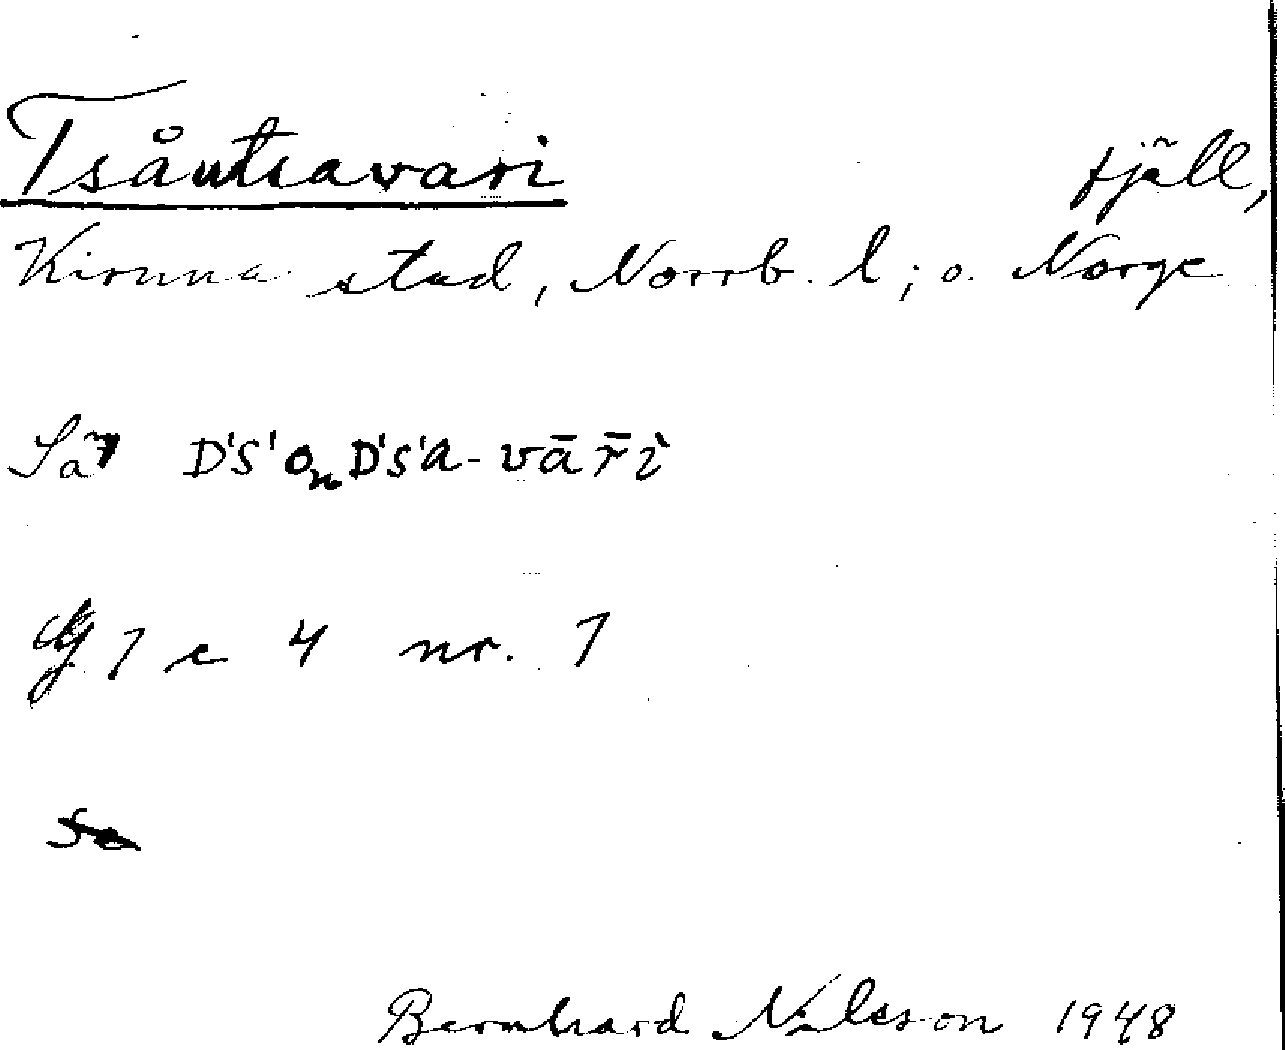 Tsåutsavari fjäll,
Kiruna stad, Norrb. l; o. Norge
D's'onD's'a-vāri
1 c 4 nr. 1
Bernhard Nilsson 1948